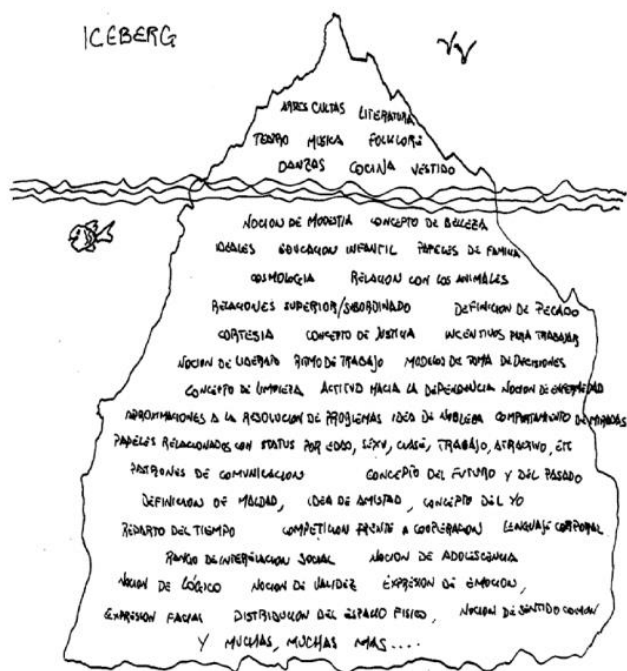 ICEBERG
ARTES CULTAS LITERATURA
TEATRO MUSICA FOLKLORE
DANZAS COCINA VESTIDO
NOCION DE MODESTIA CONCEPTO DE BELLEZA
IDEALES EDUCACION INFANTIL PAPELES DE FAMILIA
COSMOLOGIA RELACION CON LOS ANIMALES
RELACIONES SUPERIOR/SUBORDINADO DEFINICION DE PECADO
CORTESIA CONCEPTO DE JUSTICIA INCENTIVOS PARA TRABAJAR
NOCION DE LIDERATO RITMO DE TRABAJO MODELOS DE TOMA DE DECISIONES
CONCEPTO DE LIMPIEZA ACTITUD HACIA LA DEPENDENCIA NOCION DE ENFERMEDAD
APROXIMACIONES A LA RESOLUCION DE PROBLEMAS IDEA DE NOBLEZA COMPORTAMIENTO DE MIRADAS
PAPELES RELACIONADOS CON STATUS POR EDAD, SEXO, CLASE, TRABAJO, ATRACTIVO, ETC
PATRONES DE COMUNICACION CONCEPTO DEL FUTURO Y DEL PASADO
DEFINICION DE MALDAD, IDEA DE AMISTAD, CONCEPTO DEL YO
REPARTO DEL TIEMPO COMPETICION FRENTE A COOPERACION LENGUAJE CORPORAL
RANGO DE INTERRELACION SOCIAL NOCION DE ADOLESCENCIA
NOCION DE LÓGICO NOCION DE VALIDEZ EXPRESION DE EMOCION,
EXPRESION FACIAL DISTRIBUCION DEL ESPACIO FISICO, NOCION DE SENTIDO COMUN
Y MUCHAS, MUCHAS MAS....